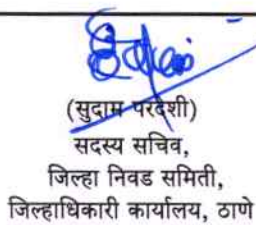 (सुदाम परदेशी)
सदस्य सचिव,
जिल्हा निवड समिती,
जिल्हाधिकारी कार्यालय, ठाणे